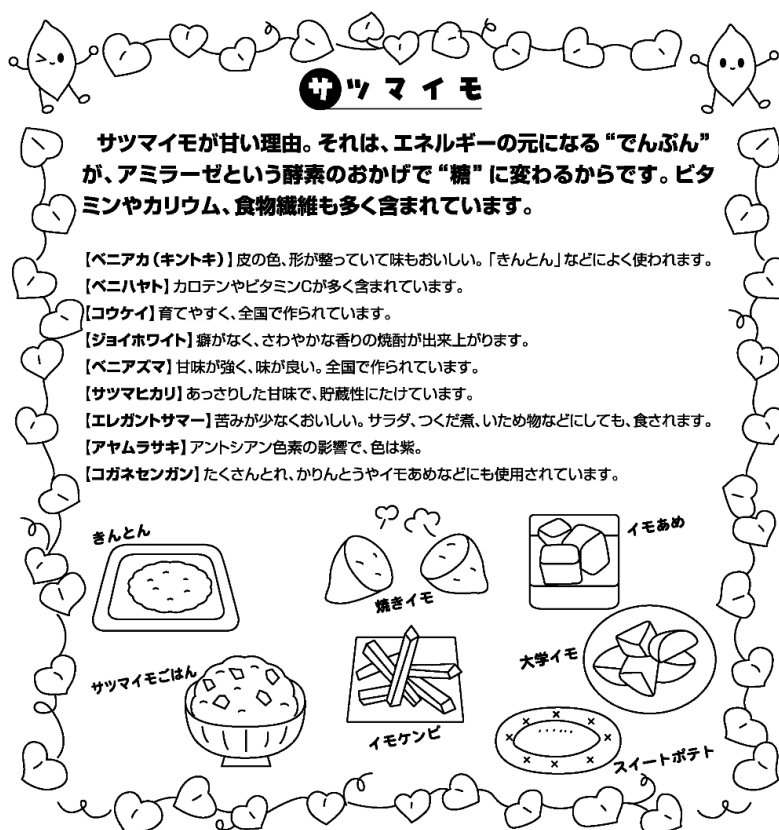 サツマイモ
サツマイモが甘い理由。それは、エネルギーの元になる“でんぷん”
が、アミラーゼという酵素のおかげで“糖”に変わるからです。ビタ
ミンやカリウム、食物繊維も多く含まれています。
【ベニアカ(キントキ)】皮の色、形が整っていて味もおいしい。「きんとん」などによく使われます。
【ベニハヤト】カロテンやビタミンCが多く含まれています。
【コウケイ】育てやすく、全国で作られています。
【ジョイホワイト】癖がなく、さわやかな香りの焼酎が出来上がります。
【ベニアズマ】甘味が強く、味が良い。全国で作られています。
【サツマヒカリ】あっさりした甘味で、貯蔵性にたけています。
【エレガントサマー】苦みが少なくおいしい。サラダ、つくだ煮、いため物などにしても、食されます。
【アヤムラサキ】アントシアン色素の影響で、色は紫。
【コガネセンガン】たくさんとれ、かりんとうやイモあめなどにも使用されています。
きんとん
焼きイモ
イモあめ
サツマイモごはん
イモケンピ
大学イモ
スイートポテト